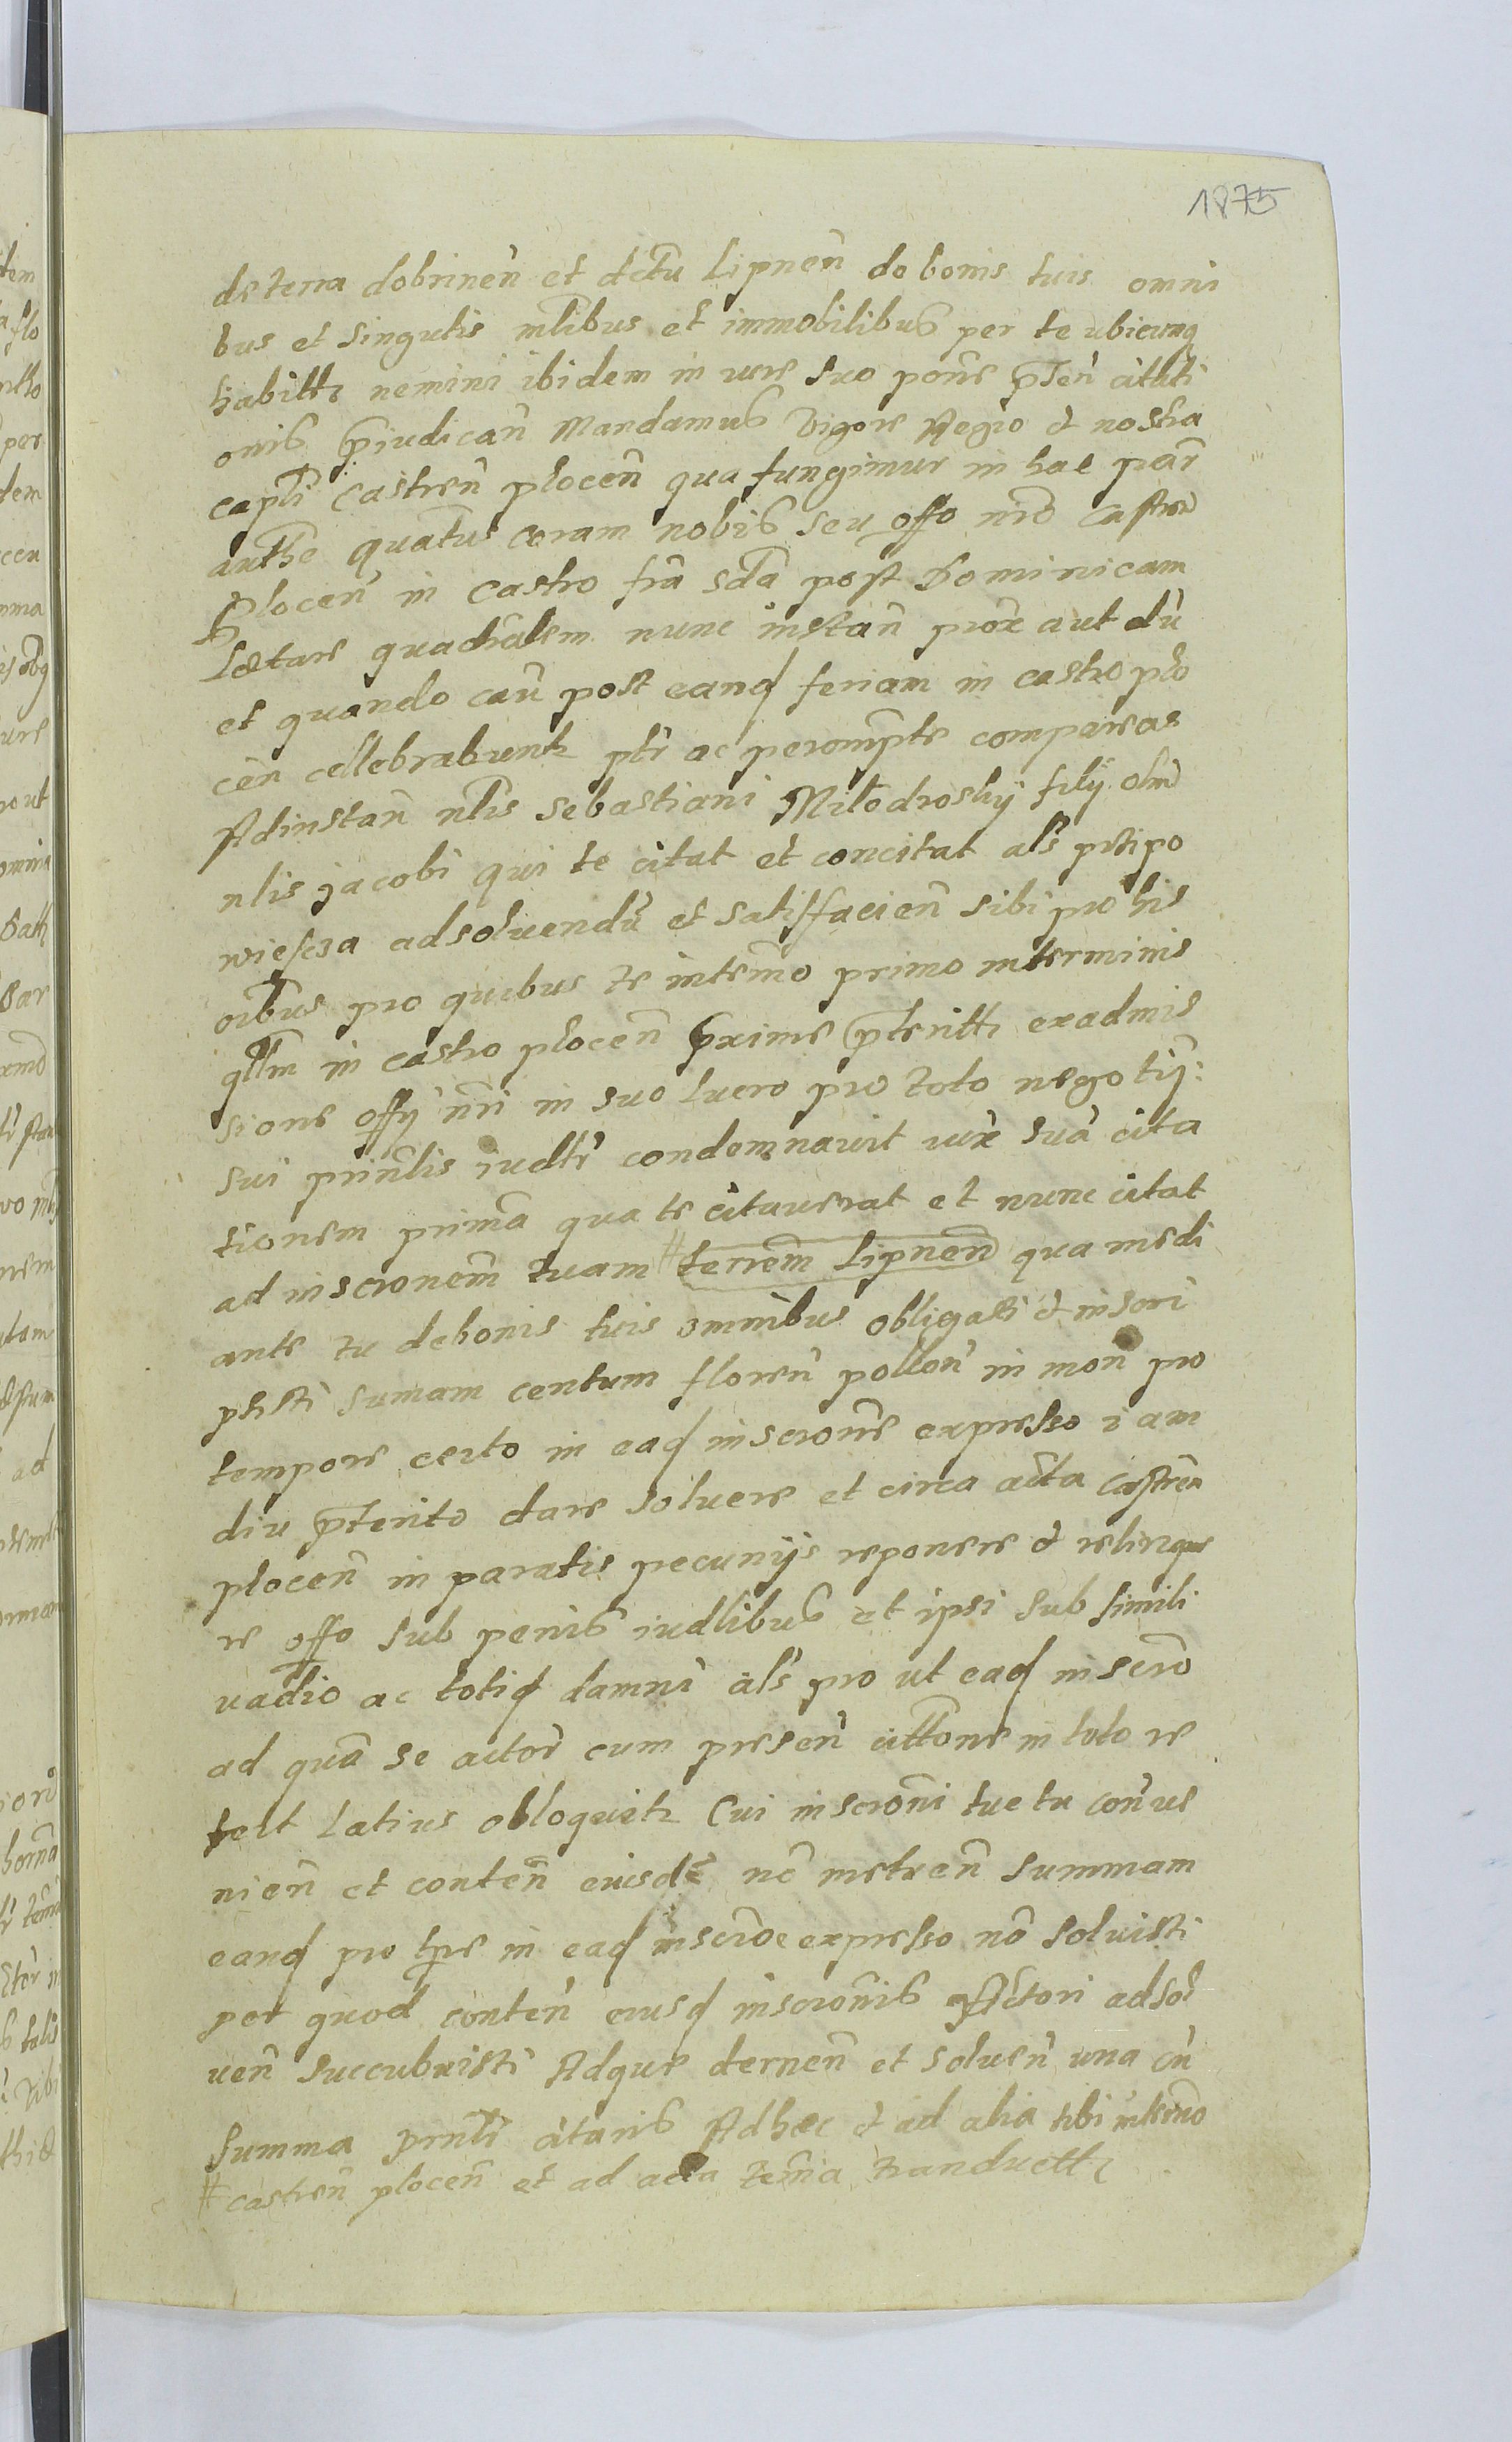 1875
de terra dobrinen̄ et dctū Lipnen̄ de bonis tuis omni
bus et singulis mlībus et immobilibus per te ubicunq
habittr nemini ibidem in iure suo pone p̄ten̄ citati
onis p̄iudican̄ Mandamus Vigore Regio et nostra
caplī Castren̄ plocen̄ qua fungimur in hac par̄
authe quatus coram nobis seu offo nrō Castren̄
plocen̄ in Castro fria scda post Dominicam
Lætare quadralem nunc instan̄ prox aut dū
et quando cau post eand feriam in castro plo
cen̄ cellebrabuntr ptr ac perempte compareas
Ad instan̄ nlis Sebastiani Milodrosky filij olim
nlis jacobi qui te citat et concitat als przipo
wiescza ad soluendū et satisfacien̄ sibi pro his
oibus pro quibus te in temno primo in terminis
qllm in castro plocen̄ p̄xime p̄terittr ex admis
sione offij nri in suo lucro pro toto negotij
sui prinlis iudlr condemnavit iux suā cita
tionem primā qua te citaverat et nunc citat
ad inscronem tuam # terrem Lipnen̄ qua medi
ante tu de bonis tuis omnibus obligasti et inscri
psisti sumam centum floren̄ pollon̄ in mon̄ pro
tempore certo in ead inscrone expresso iam
diu p̄terito dare soluere et circa acta castren̄
plocen̄ in paratis pecunijs reponere et relinque
re offo sub penis iudlibus et ipsi sub simili
vadio ac totid damni als pro ut ead inscro
ad quā se actor cum presen̄ cittone in toto re
fert latius obloquitr Cui inscroni tue tu conue
nien̄ et conten̄ eiusdē nō metuen̄ summam
eand pro tpre in ead inscroe expresso nō soluisti
per quod conten̄ eiusd inscronis Actori ad sol
uen̄ succubuisti Adque cernen̄ et soluen̄ una cū
summa prnli citaris Ad hec et ad alia tibi in termo
# castren̄ plocen̄ et ad acta temia tranductr